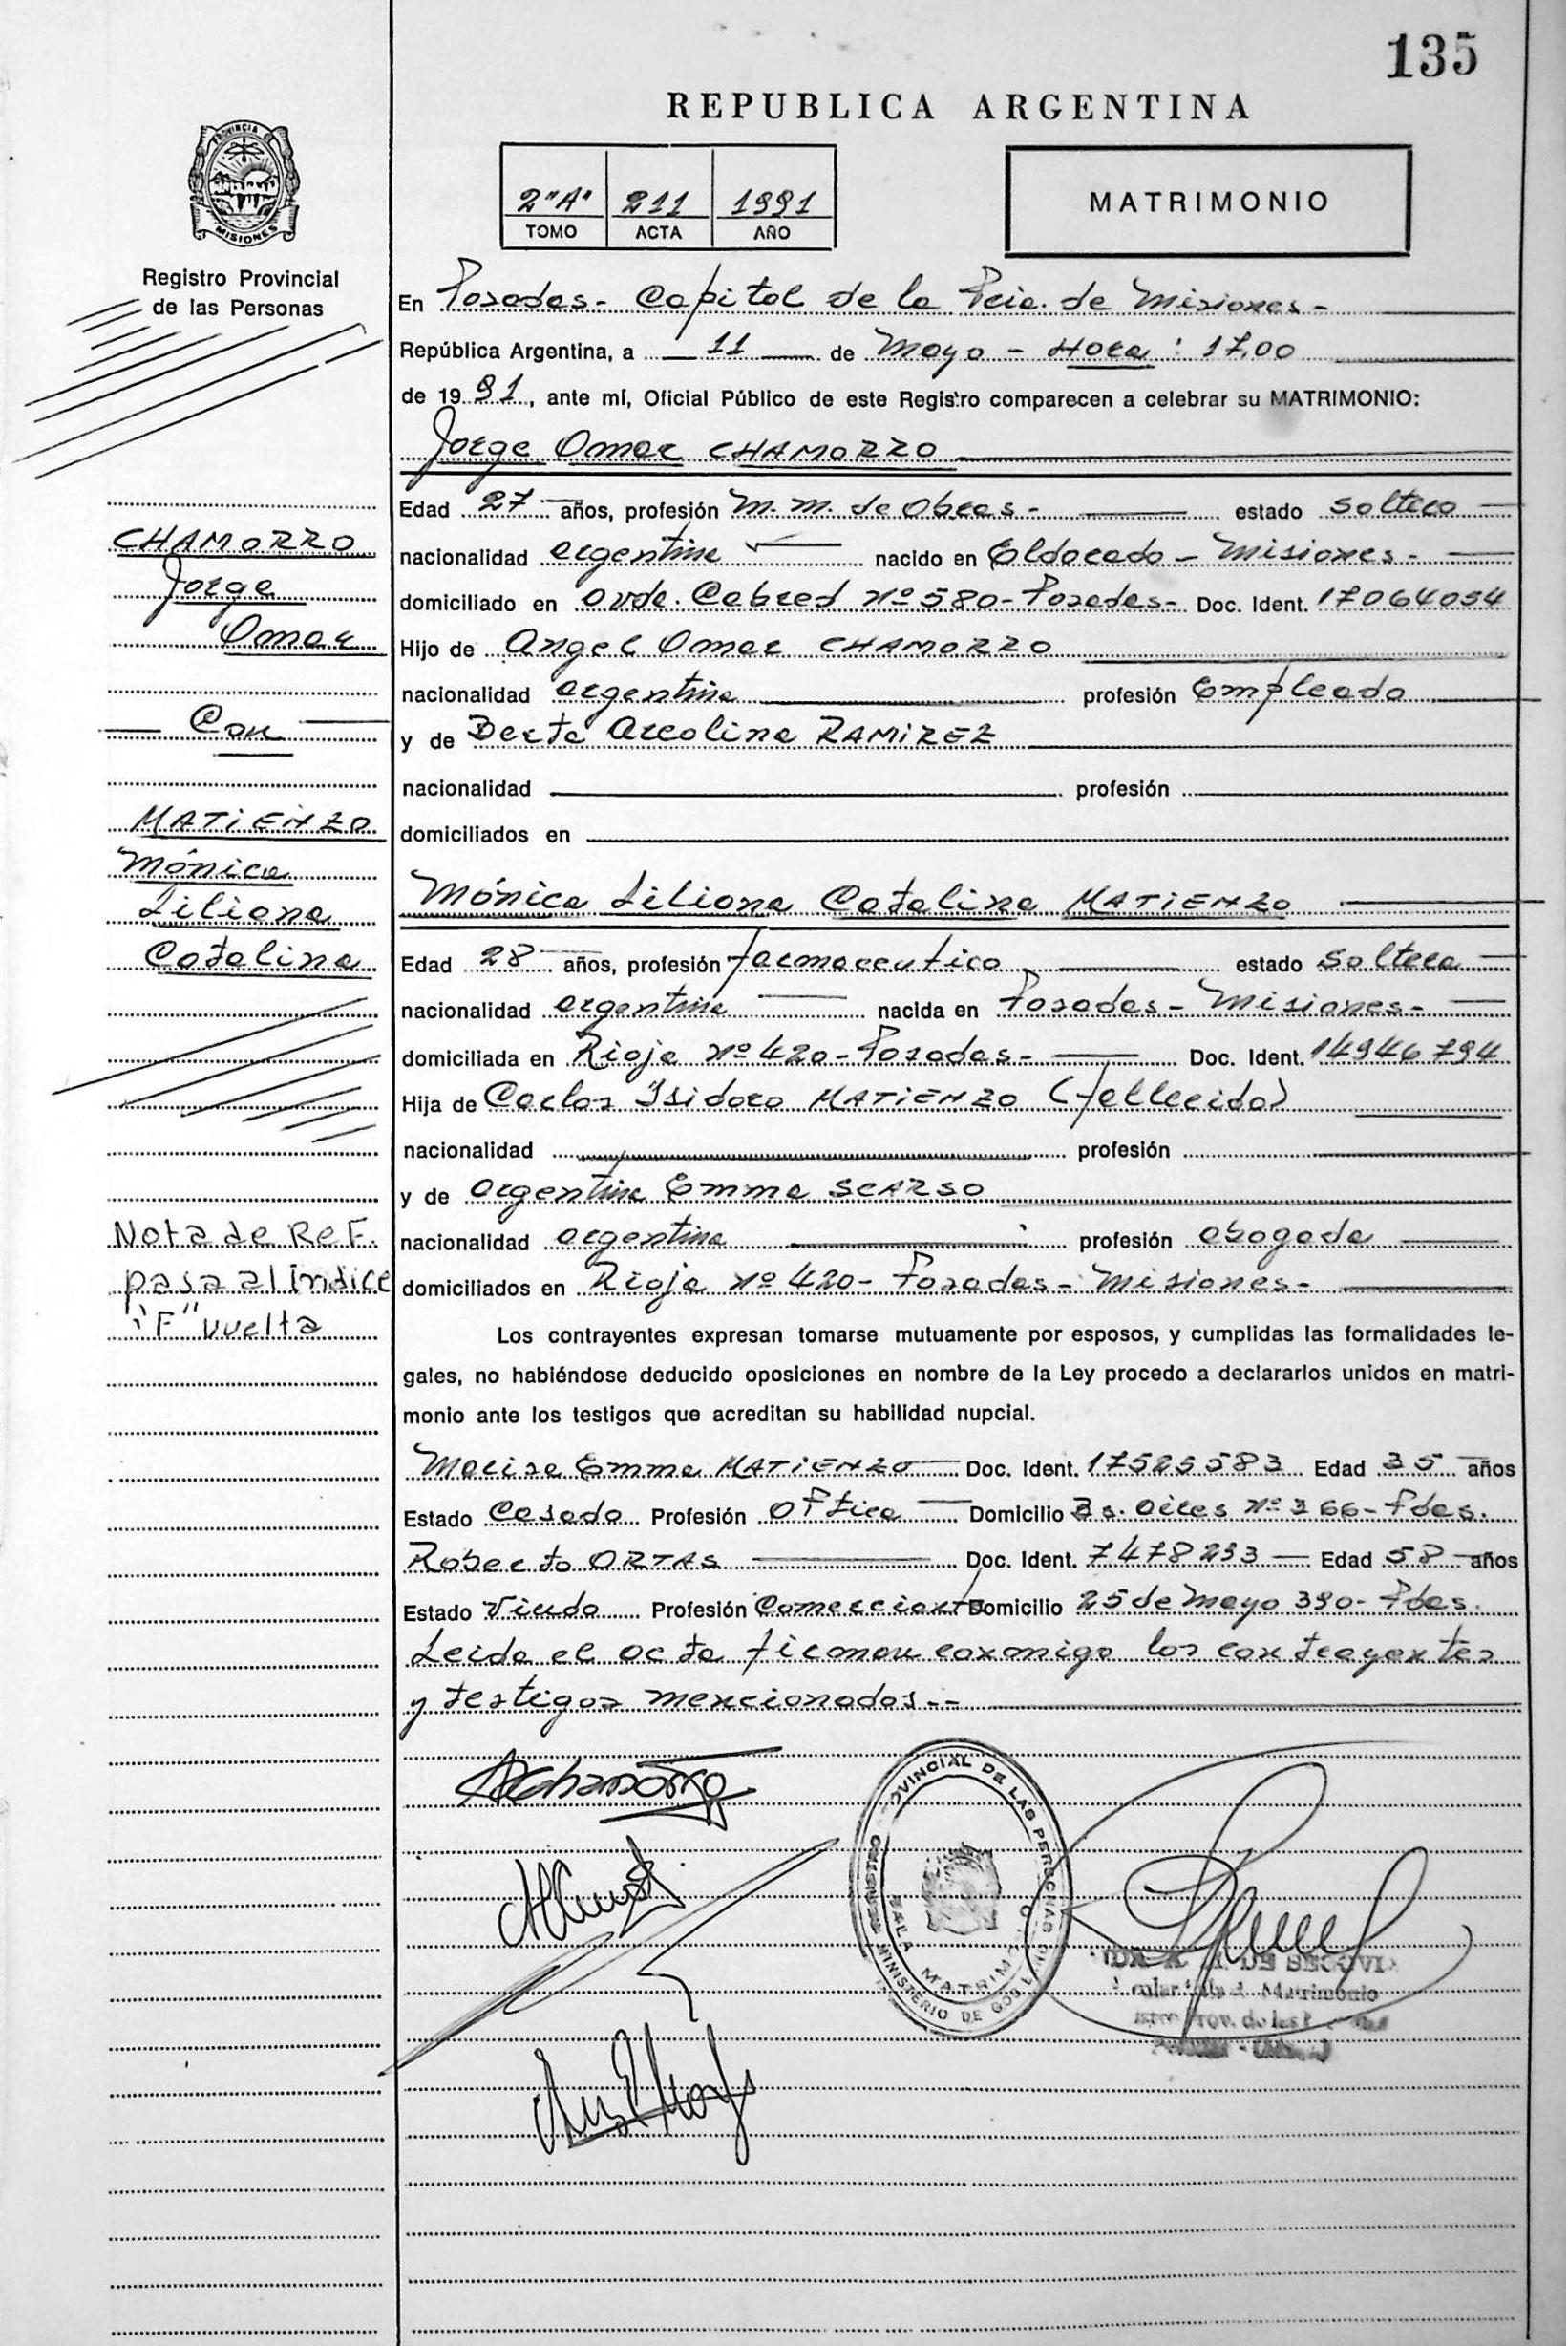 135
REPUBLICA ARGENTINA
2"A" 211 1991
TOMO ACTA AÑO
MATRIMONIO
PROVINCIA DE
MISIONES
Registro Provincial
de las Personas
En Posadas - Capital de la Pcia. de Misiones -
República Argentina, a 11 de Mayo - Hora : 17,00
de 1991, ante mí, Oficial Público de este Registro comparecen a celebrar su MATRIMONIO:
Jorge Omar CHAMORRO
Edad 27 años, profesión M. M. de Obras - estado soltero
nacionalidad argentina nacido en Eldorado - Misiones -
domiciliado en Avda. Cabred Nº 580 - Posadas - Doc. Ident. 17064054
Hijo de Angel Omar CHAMORRO
nacionalidad argentina profesión Empleado
y de Berta Arcolina RAMIREZ
nacionalidad profesión
domiciliados en
Mónica Liliana Catalina MATIENZO
Edad 28 años, profesión farmaceutica estado soltera
nacionalidad argentina nacida en Posadas - Misiones -
domiciliada en Rioja Nº 420 - Posadas - Doc. Ident. 14946794
Hija de Carlos Isidoro MATIENZO (fallecido)
nacionalidad profesión
y de Argentina Emma SCARSO
nacionalidad argentina profesión abogada
domiciliados en Rioja Nº 420 - Posadas - Misiones -
Los contrayentes expresan tomarse mutuamente por esposos, y cumplidas las formalidades le-
gales, no habiéndose deducido oposiciones en nombre de la Ley procedo a declararlos unidos en matri-
monio ante los testigos que acreditan su habilidad nupcial.
Marisa Emma MATIENZO Doc. Ident. 17525583 Edad 35 años
Estado Casada Profesión Optica Domicilio Bs. Aires Nº 366 - Pdas.
Roberto ORTAS Doc. Ident. 7478293 Edad 58 años
Estado Viudo Profesión Comerciante Domicilio 25 de Mayo 390 - Pdas.
Leida el acta firman conmigo los contrayentes
y testigos mencionados - -
CHAMORRO
Jorge
Omar
Con
MATIENZO
Mónica
Liliana
Catalina
Nota de Ref.
pasa al índice
"F" vuelta
PROVINCIAL DE LAS PERSONAS
MINISTERIO DE GOBIERNO
SALA MATRIMONIO
DE SEGOVIA
Matrimonio
Prov. de las